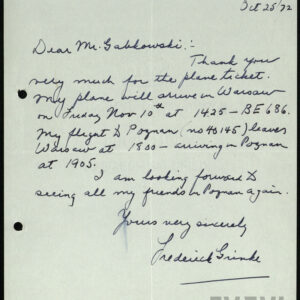 Oct 25/72
Dear Mr. Gabkowski:-
Thank you
very much for the plane ticket.
My plane will arrive in Warsaw
on Friday Nov 10th at 1425 - BE 686.
My fleght to Poznan, no (40145) leaves
Warsaw at 1800 - arriving in Poznan
at 1905.
I am looking forward to
seeing all my friends in Poznan again.
Yours very sincerely
Frederick Grinke